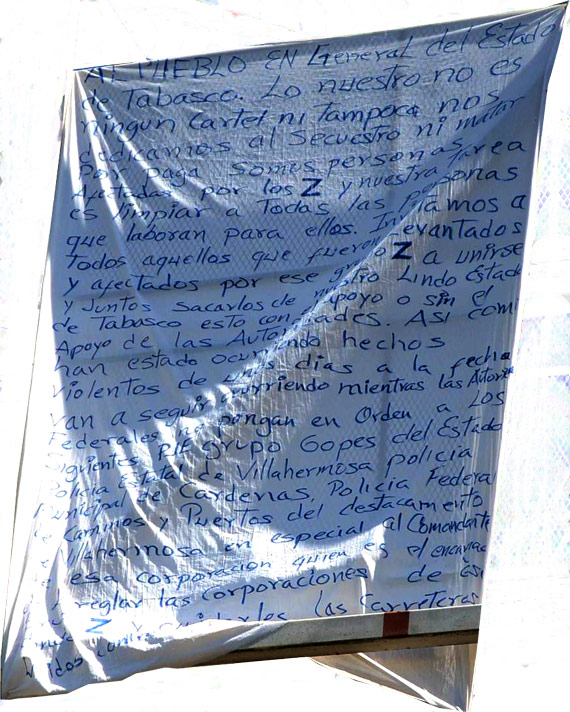 AL PUEBLO EN General del Estado
de Tabasco. Lo nuestro no es
ningun Cartel ni tampoco nos
dedicamos al Secuestro ni matar
Por Paga Somos personas
Afectadas por los Z y nuestra tarea
es limpiar a Todas las personas
que laboran para ellos. a
Todos aquellos que fueron Levantados
y afectados por ese Z a unirse
y Juntos Sacarlos de nuestro Lindo Estado
de Tabasco esto con Apoyo o sin el
Apoyo de las Así como
han estado hechos
violentos de dias a la fecha
van a seguir mientras las
Federales pongan en Orden a LOS
Siguientes grupo Gopes del Estado
Policia Estatal de Villahermosa policia
municipal de Cardenas, Policia Federal
de Caminos y Puertos del destacamento
Villahermosa en especial al Comandante
esa corporasion quien es el
las Corporaciones de
Z y las Carreteras